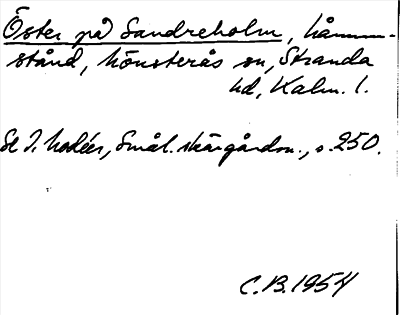 Öster på Sandreholm, hamn-
stånd, Mönsterås sn, Stranda
hd, Kalm. l.
Se I. Modéer, Smål. skärgårdsn., s. 250.
C.B. 1954